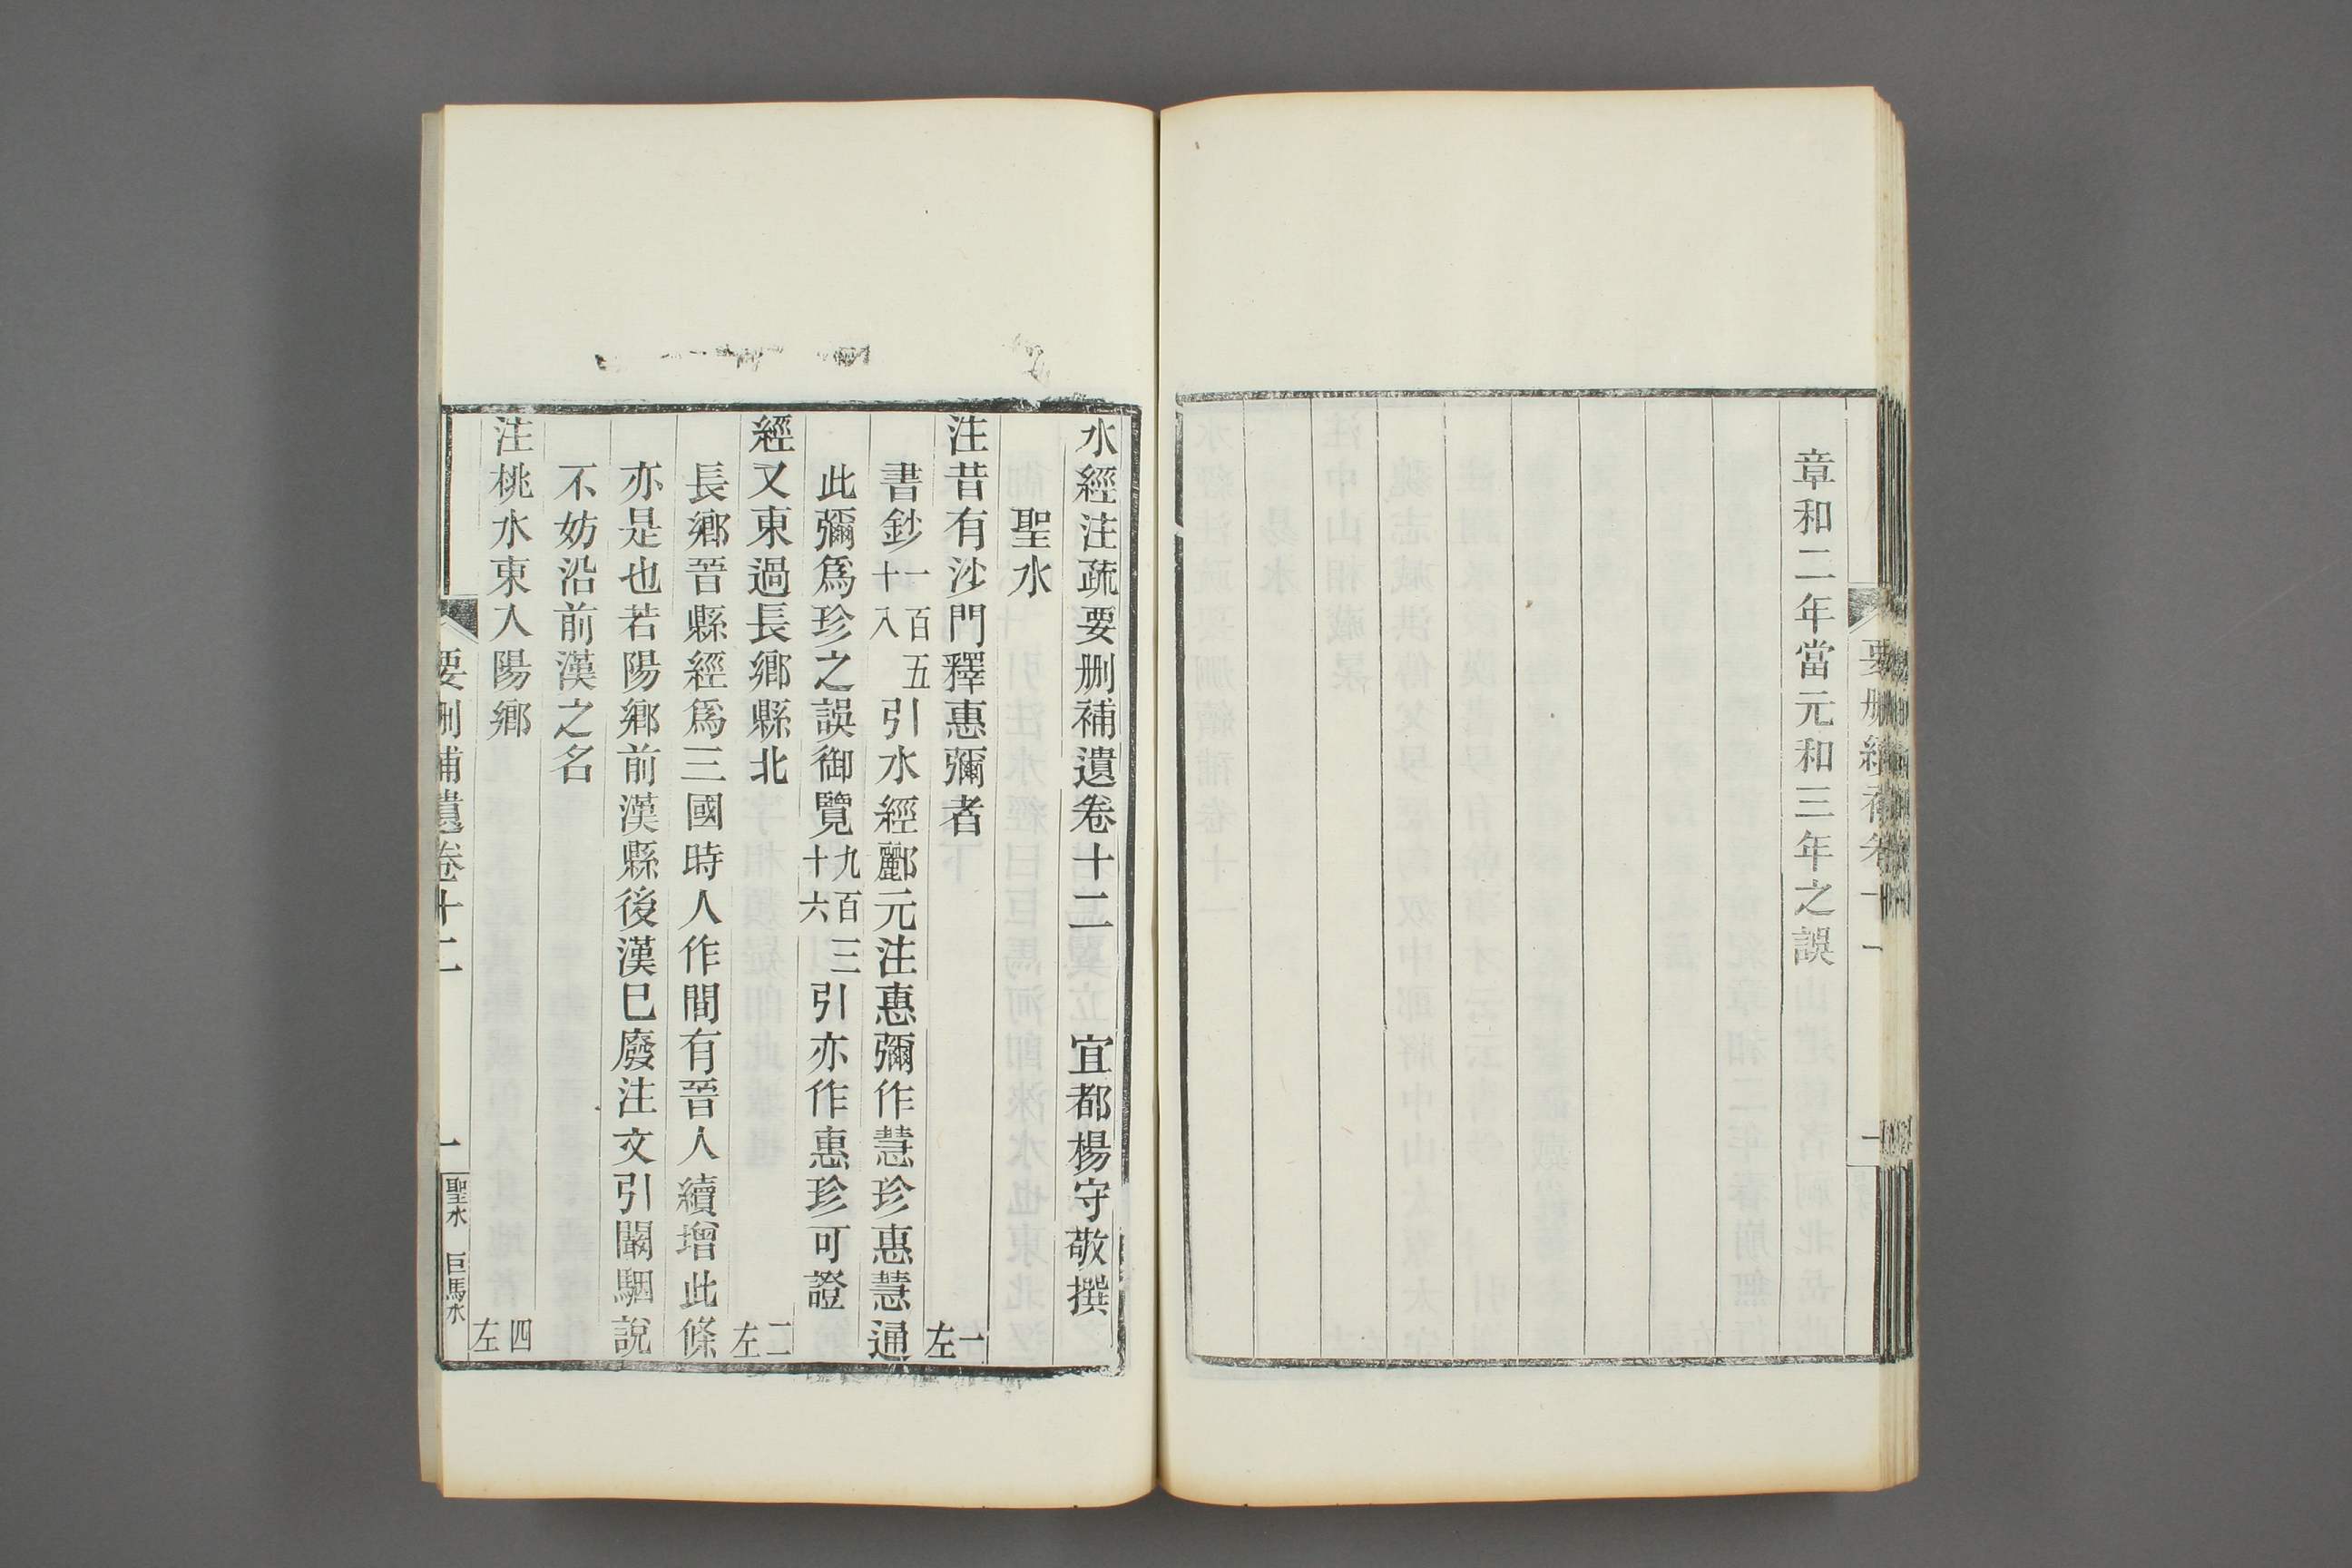 章和二年當元和三年之誤
水經注疏要刪補遺卷十二 宜都楊守敬撰
聖水
注昔有沙門釋惠彌者 一左
書鈔一百五十八引水經酈元注惠彌作慧珍惠慧通
此彌爲珍之誤御覽九百三十六引亦作惠珍可證
經又東過長鄉縣北 二左
長鄉晉縣經爲三國時人作間有晉人續增此條
亦是也若陽鄉前漢縣後漢巳廢注文引闞駰說
不妨沿前漢之名
注桃水東入陽鄉 四左
要刪補遺卷十二 一 聖水 巨馬水